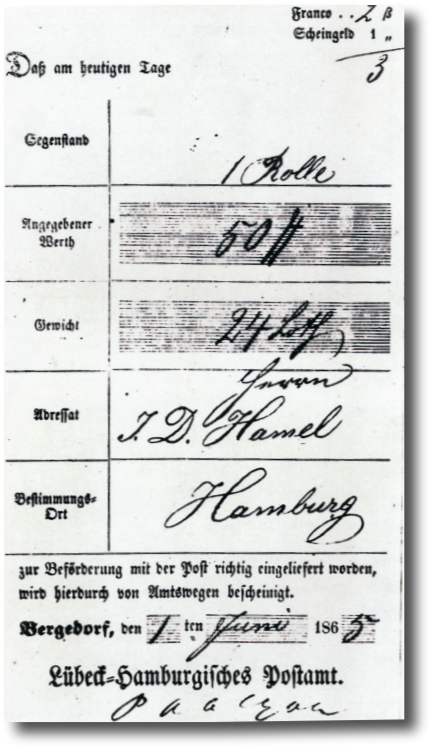 Franco . . 2 ß
Scheingeld 1 „
3
Daß am heutigen Tage
Gegenstand 1 Rolle
Angegebener
Werth 50
Gewicht 24 Loth
Herrn
Adressat J. D. Hamel
Bestimmungs-
Ort Hamburg
zur Beförderung mit der Post richtig eingeliefert worden,
wird hierdurch von Amtswegen bescheinigt.
Bergedorf, den 1 ten Juni 1865
Lübeck-Hamburgisches Postamt.
Paalzow